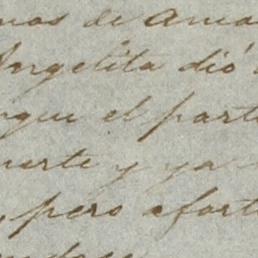 mos de ama
Angelita dió
que el part
uerte y ya
, pero afort